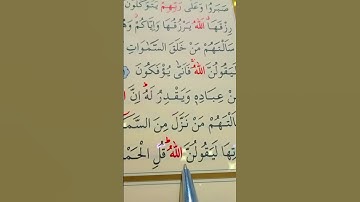 صَبَرُوا وَعَلَى رَبِّهِمْ يَتَوَكَّلُونَ
رِزْقَهَا اَللّٰهُ يَرْزُقُهَا وَاِيَّاكُمْ وَهُوَ
سَاَلْتَهُمْ مَنْ خَلَقَ السَّمٰوَاتِ
لَيَقُولُنَّ اللّٰهُ فَاَنّٰى يُؤْفَكُونَ
مِنْ عِبَادِهِ وَيَقْدِرُ لَهُ اِنَّ
سَاَلْتَهُمْ مَنْ نَزَّلَ مِنَ السَّمَٓاءِ
لَيَقُولُنَّ اللّٰهُ قُلِ الْحَمْدُ